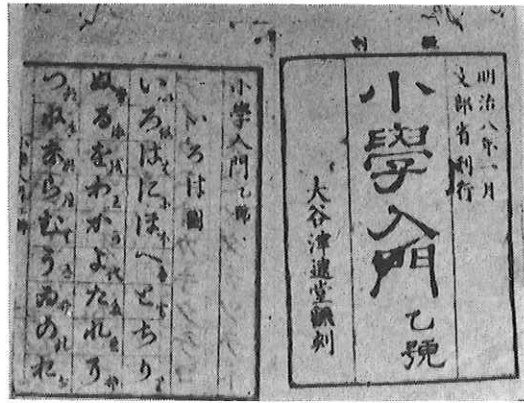 明治八年一月
文部省刊行
小學入門 乙號
大谷津逮堂飜刻
小學入門 乙號
いろは圖
いろはにほへとちり
ぬるをわかよたれそ
つねならむうゐのお